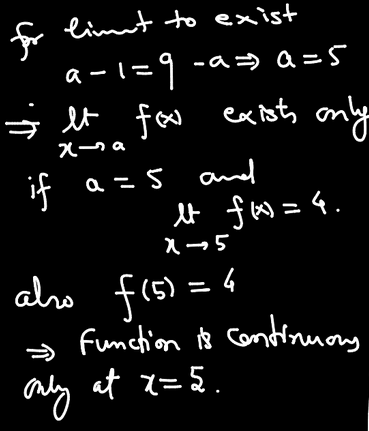 for limit to exist
a - 1 = 9 - a ⇒ a = 5
⇒ lt f(x) exists only
x→a
if a = 5 and
lt f(x) = 4.
x→5
also f(5) = 4
⇒ Function is continuous
only at x = 5.